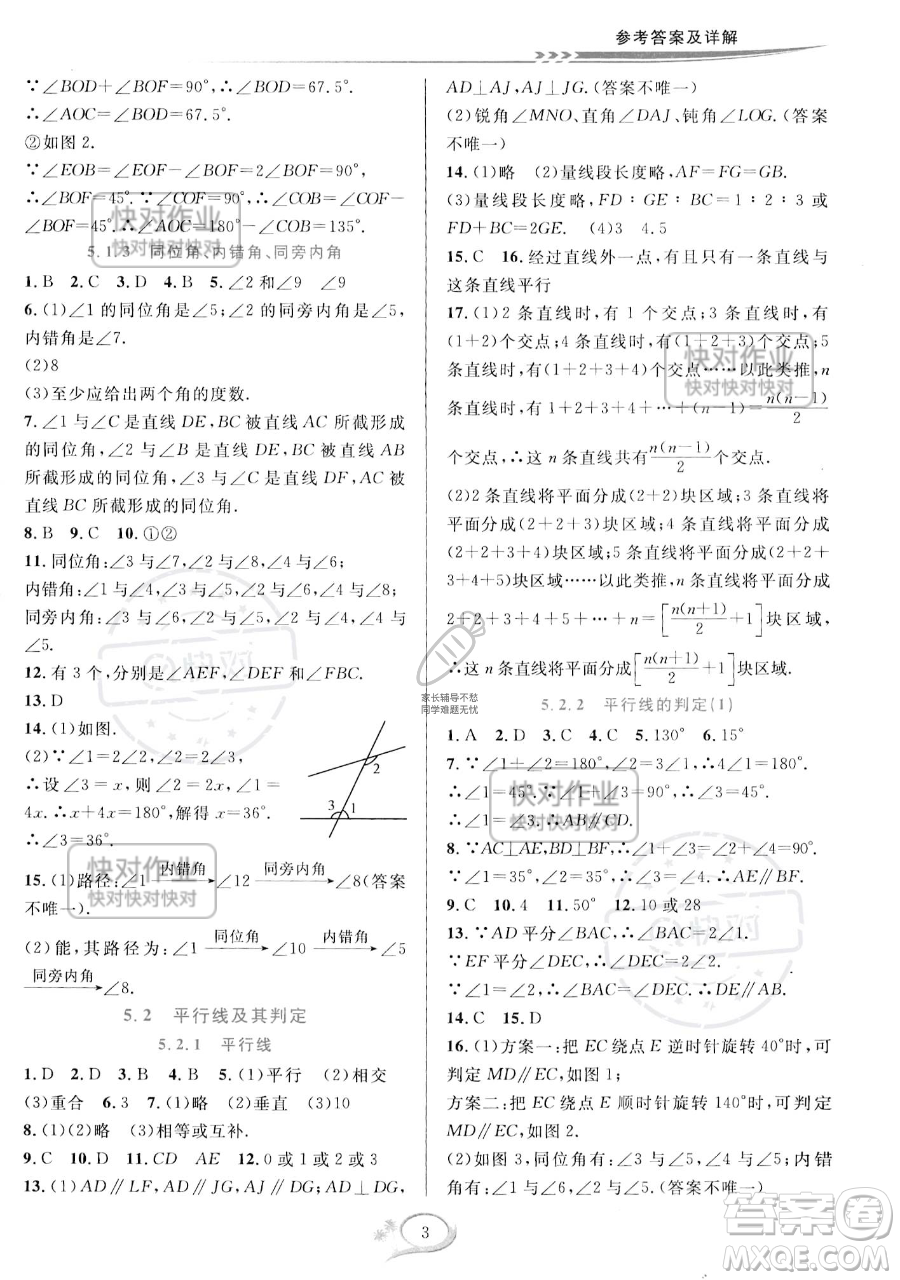 参考答案及详解
∵∠BOD+∠BOF=90°,∴∠BOD=67.5°.
∴∠AOC=∠BOD=67.5°.
②如图 2.
∵∠EOB=∠EOF-∠BOF=2∠BOF=90°,
∴∠BOF=45°.∵∠COF=90°,∴∠COB=∠COF-
∠BOF=45°.∴∠AOC=180°-∠COB=135°.
5.1.3 同位角、内错角、同旁内角
1.B 2.C 3.D 4.B 5.∠2和∠9 ∠9
6.(1)∠1的同位角是∠5;∠2的同旁内角是∠5,
内错角是∠7.
(2)8
(3)至少应给出两个角的度数.
7.∠1与∠C是直线 DE,BC 被直线 AC 所截形成
的同位角,∠2与∠B是直线 DE,BC 被直线 AB
所截形成的同位角,∠3与∠C是直线 DF,AC 被
直线 BC 所截形成的同位角.
8.B 9.C 10.①②
11.同位角:∠3与∠7,∠2与∠8,∠4与∠6;
内错角:∠1与∠4,∠3与∠5,∠2与∠6,∠4与∠8;
同旁内角:∠3与∠6,∠2与∠5,∠2与∠4,∠4与
∠5.
12.有 3 个,分别是∠AEF,∠DEF 和∠FBC.
13.D
14.(1)如图.
(2)∵∠1=2∠2,∠2=2∠3,
∴设∠3=x,则∠2=2x,∠1=
4x.∴x+4x=180°,解得 x=36°.
∴∠3=36°.
2
3 1
15.(1)路径:∠1 内错角 ∠12 同旁内角 ∠8(答案
不唯一).
(2)能,其路径为:∠1 同位角 ∠10 内错角 ∠5
同旁内角 ∠8.
5.2 平行线及其判定
5.2.1 平行线
1.D 2.B 3.C 4.A 5.(1)平行 (2)相交
(3)重合 6.3 7.(1)略 (2)垂直 (3)10
8.(1)(2)略 (3)相等或互补.
9.C 10.D 11.CD AE 12.0 或 1 或 2 或 3
13.(1)AD∥LF,AD∥DG,AJ∥DG;AD⊥DG,
AD⊥AJ,AJ⊥JG.(答案不唯一)
(2)锐角∠MNO、直角∠DAJ、钝角∠LOG.(答案
不唯一)
14.(1)略 (2)量线段长度略,AF=FG=GB.
(3)量线段长度略,FD∶GE∶BC=1∶2∶3或
FD+BC=2GE. (4)3 4.5
15.C 16.经过直线外一点,有且只有一条直线与
这条直线平行
17.(1)2 条直线时,有 1 个交点;3 条直线时,有
(1+2)个交点;4 条直线时,有(1+2+3)个交点;5
条直线时,有(1+2+3+4)个交点……以此类推,n
条直线时,有 1+2+3+4+…+(n-1)=n(n-1)/2
个交点,∴这 n 条直线共有n(n-1)/2个交点.
(2)2条直线将平面分成(2+2)块区域;3条直线将
平面分成(2+2+3)块区域;4条直线将平面分成
(2+2+3+4)块区域;5条直线将平面分成(2+2+
3+4+5)块区域……以此类推,n条直线将平面分成
2+2+3+4+5+…+n=[n(n+1)/2+1]块区域,
∴这 n 条直线将平面分成[n(n+1)/2+1]块区域.
家长辅导不愁
同学难题无忧
5.2.2 平行线的判定(1)
1.A 2.D 3.C 4.C 5.130° 6.15°
7.∵∠1+∠2=180°,∠2=3∠1,∴∠1+3∠1=180°.
∴∠1=45°.∵∠1+∠3=90°,∴∠3=45°.
∴∠1=∠3.∴AB∥CD.
8.∵AC⊥AE,BD⊥BF,∴∠1+∠EAB=∠2+∠FBG=90°.
∵∠1=∠2,∴∠EAB=∠FBG.∴AE∥BF.
9.C 10.4 11.50° 12.10 或 28
13.∵AD平分∠BAC,∴∠BAC=2∠1.
∵EF平分∠DEC,∴∠DEC=2∠2.
∵∠1=∠2,∴∠BAC=∠DEC.∴DE∥AB.
14.C 15.D
16.(1)方案一:把 EC 绕点 E 逆时针旋转 40°时,可
判定 MD∥EC,如图 1;
方案二:把 EC 绕点 E 顺时针旋转 140°时,可判定
MD∥EC,如图 2.
(2)如图 3,同位角有:∠1与∠5,∠2与∠6;内错
角有:∠4与∠5,∠3与∠6.(答案不唯一)
3
快对作业
快对快对快对
快对作业
快对快对快对
快对作业
快对快对快对
快对作业
快对快对快对
快对
答案卷
MXQE.COM